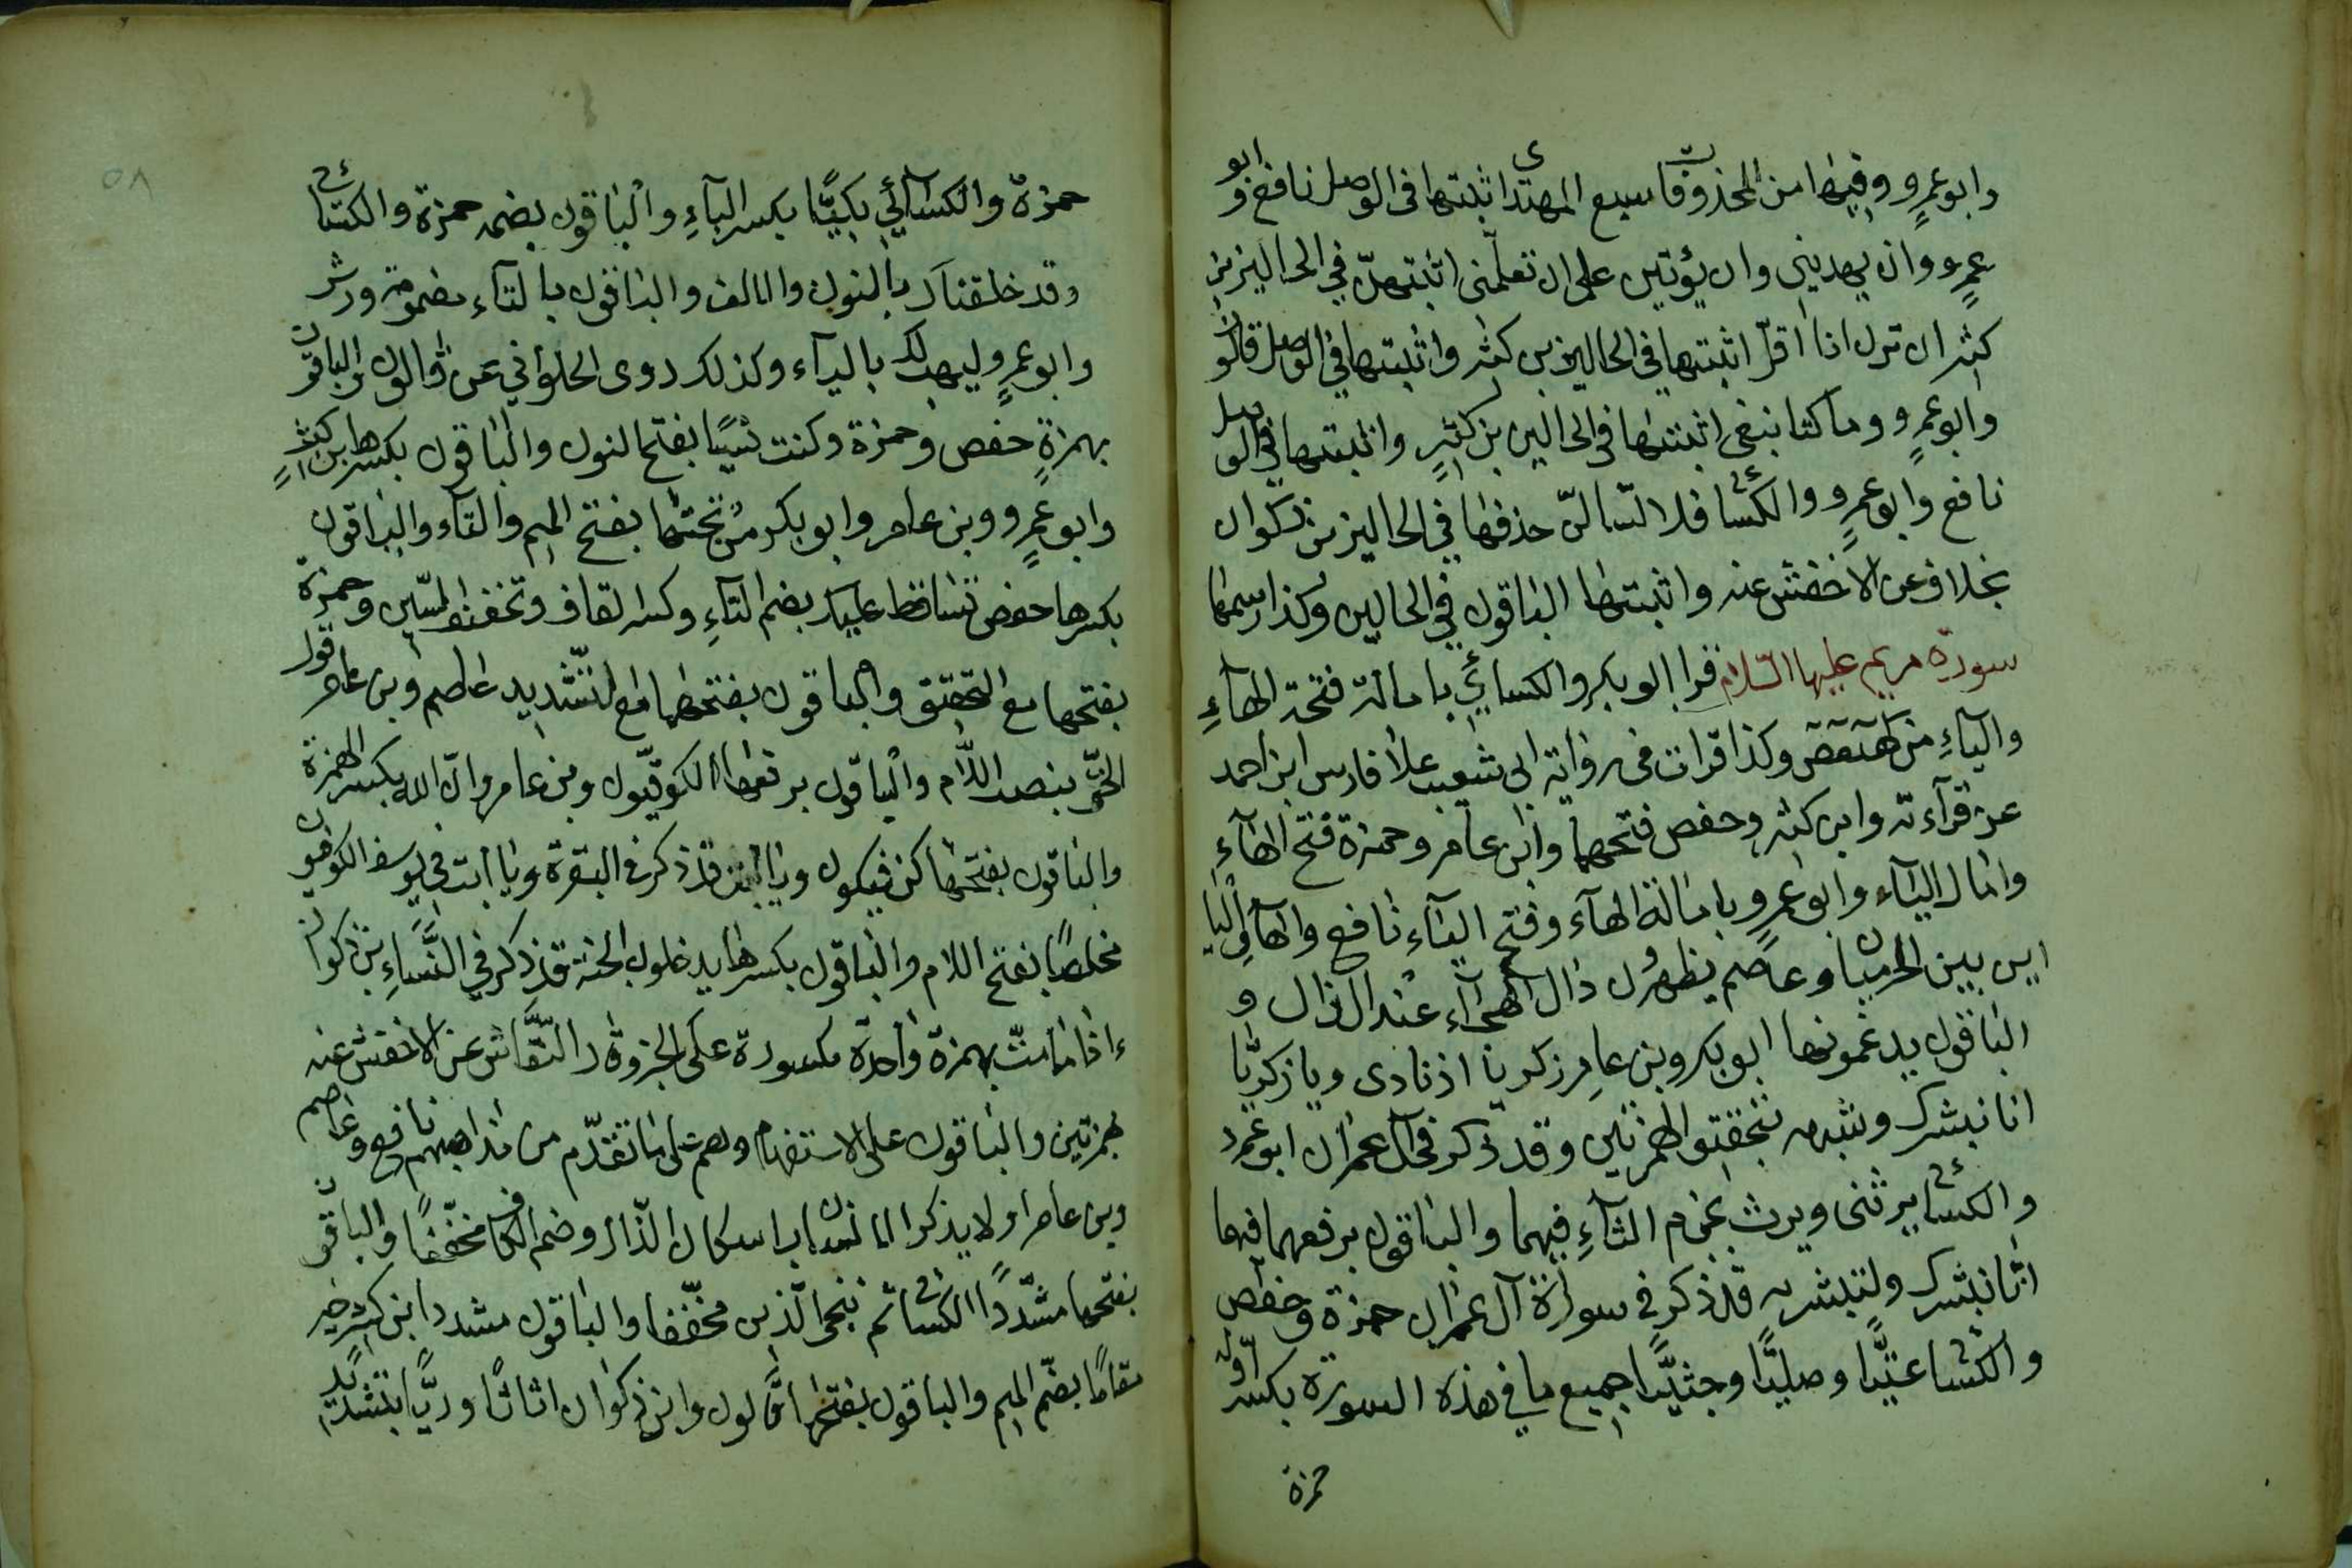 وابو عمرٍو وفيها من المحذوفات سبع المهتدى اثبتها في الوصل نافع وابو
عمرٍو وان يهديني وان يؤتين على ان تعلمني اثبتهنّ في الحالين بن
كثير ان ترن انا اقلّ اثبتها في الحالين بن كثير واثبتها في الوصل قالون
وابو عمرٍو وما كنا نبغى اثبتها في الحالين بن كثيرٍ واثبتها في الوصل
نافع وابو عمرٍو والكسائي فلا تسالنّ حذفها في الحالين بن ذكوان
بخلاف عن الاخفش عنه واثبتها الباقون في الحالين وكذا رسمها
سورة مريم عليها السّلام قرا ابو بكر والكسائي بامالة فتحة الهآءِ
واليآءِ من كهيعص وكذا قرات في رواية ابى شعيب على فارس ابن احمد
عن قرآءته وابن كثير وحفص فتحهما وابن عامر وحمزة فتح الهآءِ
وامال اليآء وابو عمرو بامالة الهآء وفتح اليآءِ نافع والهآء واليا
ابن بين الحرميان وعاصم يظهرون دال الهجآء عند الذال و
الباقون يدغمونها ابو بكر وبن عامر زكريا اذ نادى ويا زكريا
انا نبشرك وشبهه بتحقيق الهمزتين وقد ذكر في آل عمران ابو عمرو
والكسائي يرثنى ويرث بجزم الثآءِ فيهما والباقون برفعهما فيها
انا نبشرك ولتبشر به قد ذكر في سورة آل عمران حمزة وحفص
والكسائي عتيًّا وصليًّا وجثيًّا جميع ما في هذه السورة بكسر اوّله
حمزة
حمزة والكسآئي بكيًّا بكسر البآءِ والباقون بضمه حمزة والكسائي
وقد خلقناك بالنون والالف والباقون بالتآء مضمومة ورش
وابو عمرٍو ليهب لك باليآء وكذلك روى الحلواني عن قالون والباقون
بهمزةٍ حفص وحمزة وكنت نسيًا بفتح النون والباقون بكسرها بن كثيرٍ
وابو عمرٍو وبن عامر وابو بكر من تحتها بفتح الميم والتآء والباقون
بكسرها حفص تساقط عليك بضم التآءِ وكسر القاف وتخفيف السّين وحمزة
بفتحها مع التخفيف والباقون بفتحهما مع التّشديد عاصم وبن عامر قول
الحقّ بنصب اللام والباقون برفعها الكوفيّون وبن عامر وانّ الله بكسر الهمزة
والباقون بفتحها كن فيكون قد ذكر في البقرة ويا ابت في يوسف الكوفيون
مخلصًا بفتح اللام والباقون بكسرها يدخلون الجنة قد ذكر في النّسآءِ بن ذكوان
ءاذا ما متّ بهمزة واحدة مكسورة على الخبر النّقّاش عن الاخفش عنه
بهمزتين والباقون على الاستفهام وهم على ما تقدّم من مذاهبهم نافع وعاصم
وبن عامر اولا يذكر الانسان باسكان الذّال وضم الكاف مخفّفًا والباقون
بفتحها مشدّدًا الكسائي ثم ننجى الّذين مخفّفا والباقون مشددا ابن كثير خير
مقامًا بضّم الميم والباقون بفتحها قالون وابن ذكوان اثاثًا وريًّا بتشديد